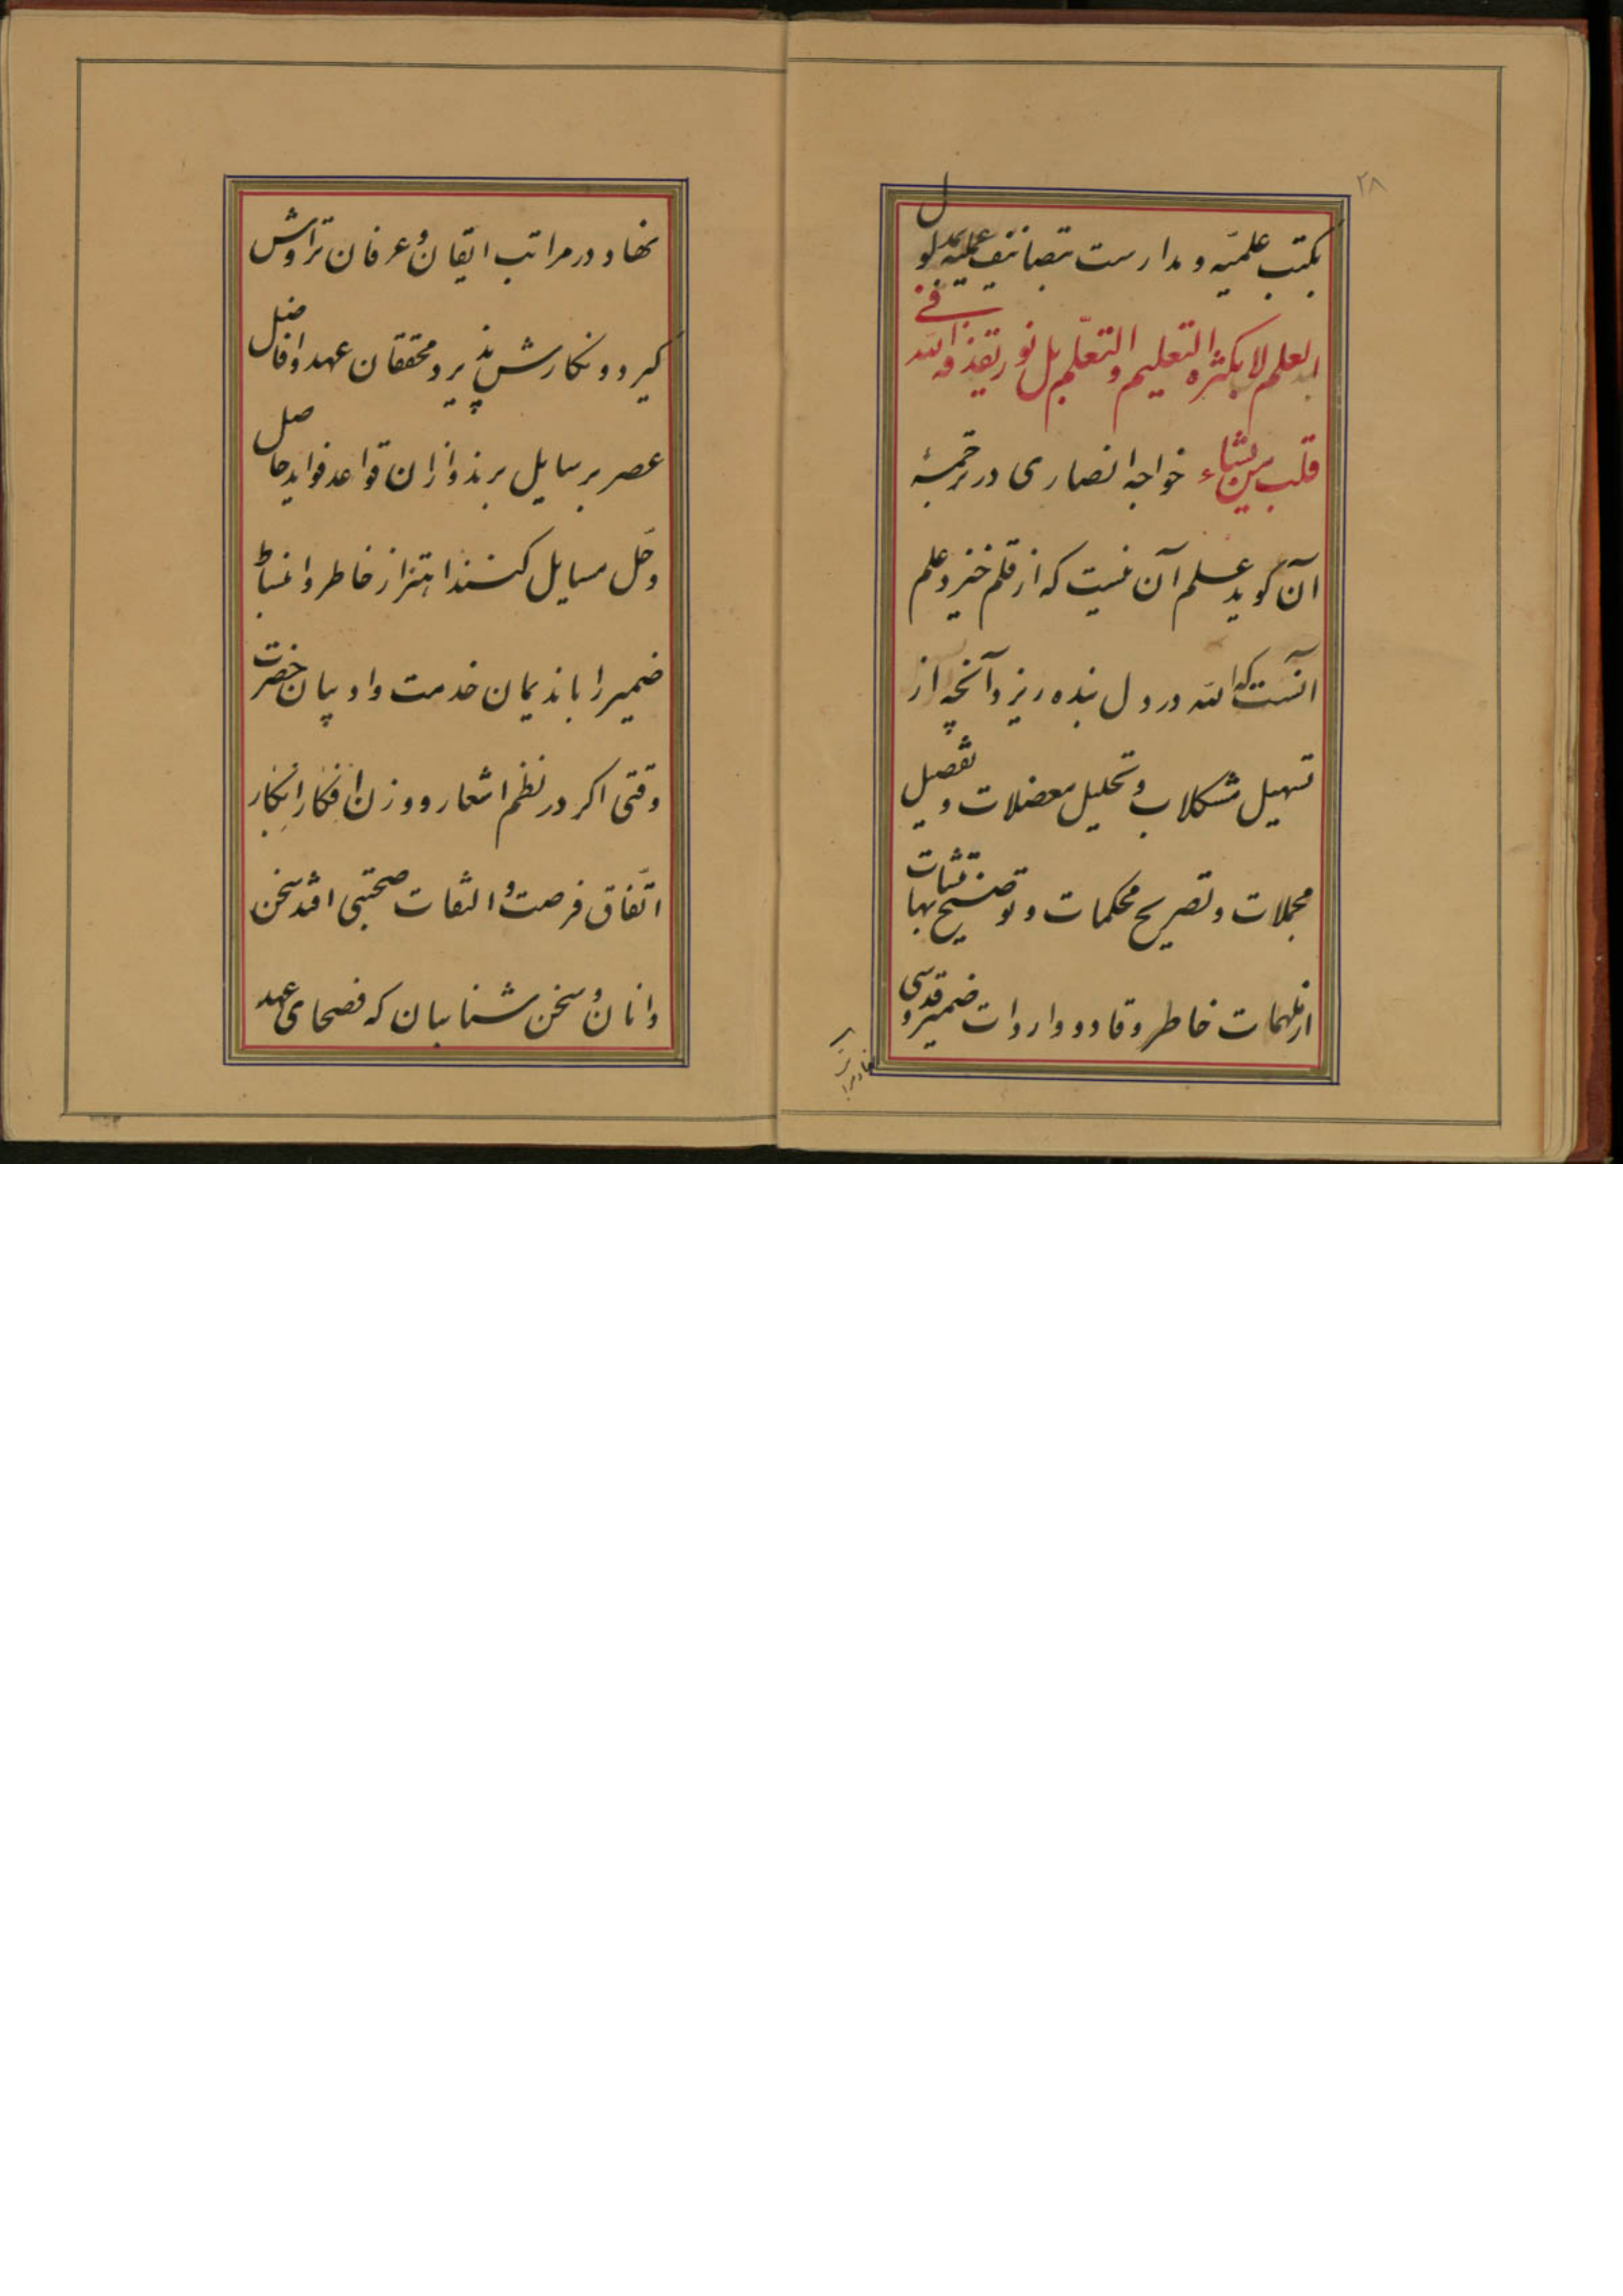 ۲۸
بکتب علمیّه و مدارست بتصانیف عملیّه
العلم لا بکثره التعلیم و التعلّم بل نور یقذفه الله فی
قلب من یشاء خواجه انصاری در ترجمهٔ
آن کوید علم آن نیست که از قلم خیزد علم
آنست که الله در دل بنده ریزد آنچه از
تسهیل مشکلات و تحلیل معضلات و تفصیل
مجملات و تصریح محکمات و توضیح متشابهات
از ملهمات خاطر وقاد و واردات ضمیر قدسی
نهاد در مراتب ایقان و عرفان تراوش
کیرد و نکارش پذیرد محققان عهد و افاضل
عصر بر سایل برند و ازان قواعد فواید حاصل
و حل مسایل کنند اهتزاز خاطر و انبساط
ضمیر را با ندیمان خدمت و ادیبان حضرت
وقتی اکر در نظم اشعار و وزن افکار ابکار
اتّفاق فرصت و التفات صحبتی افتد سخن
دانان و سخن شناسان که فصحای عهد